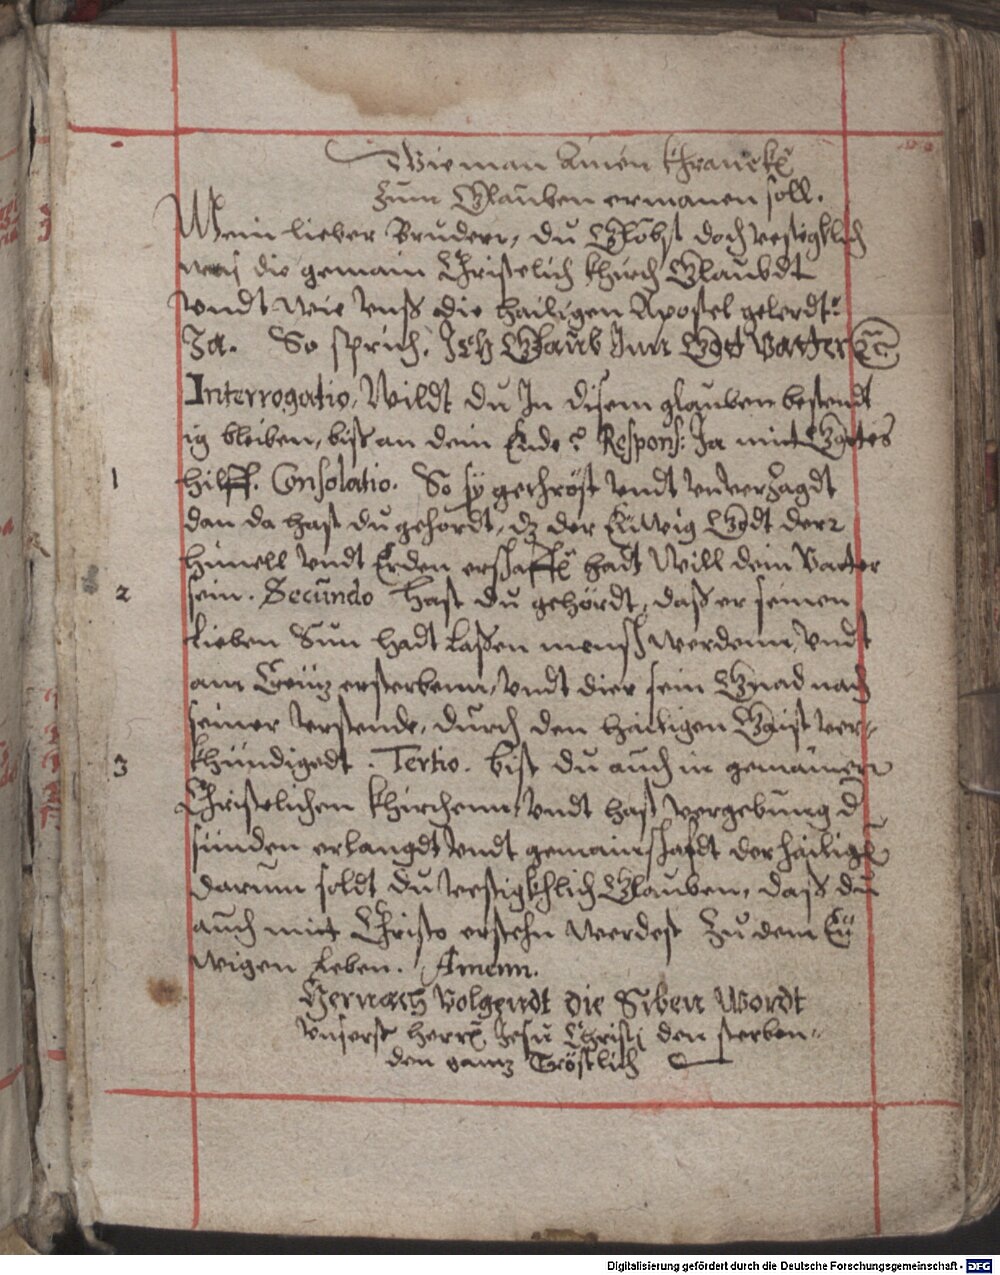 Wie man Ainen khranckē
zum Glauben ermanen soll.
Mein lieber Bruder, du Globst doch vestigklich
was die gemain Christelich khirch Glaubdt
vndt wie vnß die hailigen Apostel gelerdt?
Ja. So sprich, Ich Glaub Inn Gott Vatter
Interrogatio, Wildt du In disem glauben bestendt
ig bleiben, biß an dein Ende? Respons: Ja mit Gottes
1 hilff. Consolatio. So sÿ gethröst vndt vnverzagdt
dan da hast du gehördt, dz der Ewig Godt der
himell vndt Erden erschaffē hadt Will dein Vatter
2 sein. Secundo hast du gehördt, daß er seinen
lieben Sun hadt Laßen mensch werdenn, vndt
am Creütz ersterbenn, vndt dier sein Gnad nach
seiner Verstende, durch den hailigen Gaist ver-
3 khündigedt. Tertio. bist du auch in gemainer
Christelichen khirchenn, vndt hast vergebung d
sünden erlangdt vndt gemainschafdt der hailigē
darumm soldt du vestigkhlich Glauben, daß du
auch mitt Christo erstehn werdest zu dem Eü
wigen Leben. Amenn.
Hernach Volgendt die Siben Wordt
vnsers herrē Jesu Christi den sterben-
den gantz Tröstlich
Digitalisierung gefördert durch die Deutsche Forschungsgemeinschaft - DFG